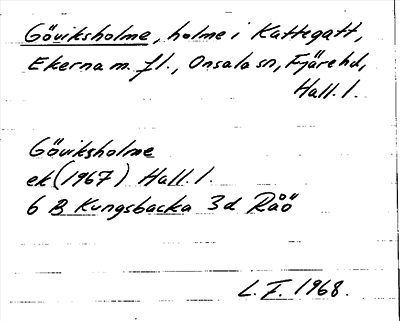 Göviksholme, holme i Kattegatt,
Ekerna m. fl., Onsala sn, Fjäre hd,
Hall. l.
Göviksholme
ek (1967) Hall. l.
6 B Kungsbacka 3d Råö
L. F. 1968.